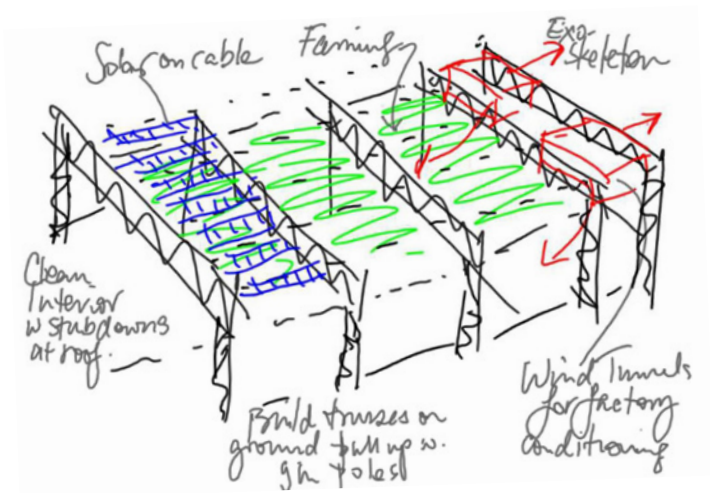 Solar on cable
Farming
Exo-
Skeleton
Clean
Interior
w stubdowns
at roof.
Build trusses on
ground pull up w.
gin poles
Wind Tunnels
for factory
conditioning